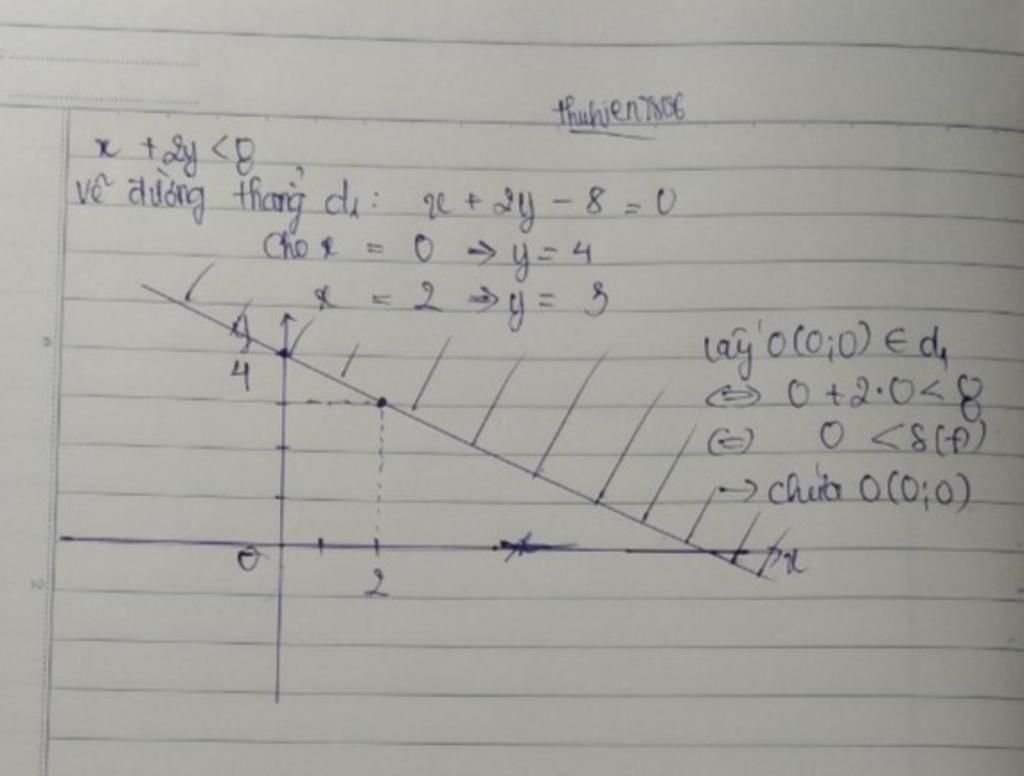 thuhien7806
x + 2y < 8
Vẽ đường thẳng d₁: x + 2y - 8 = 0
Cho x = 0 → y = 4
x = 2 → y = 3
y
4
Lấy O(0;0) ∈ d₁
⇔ 0 + 2·0 < 8
⇔ 0 < 8 (t)
→ chứa O(0;0)
O
x
2